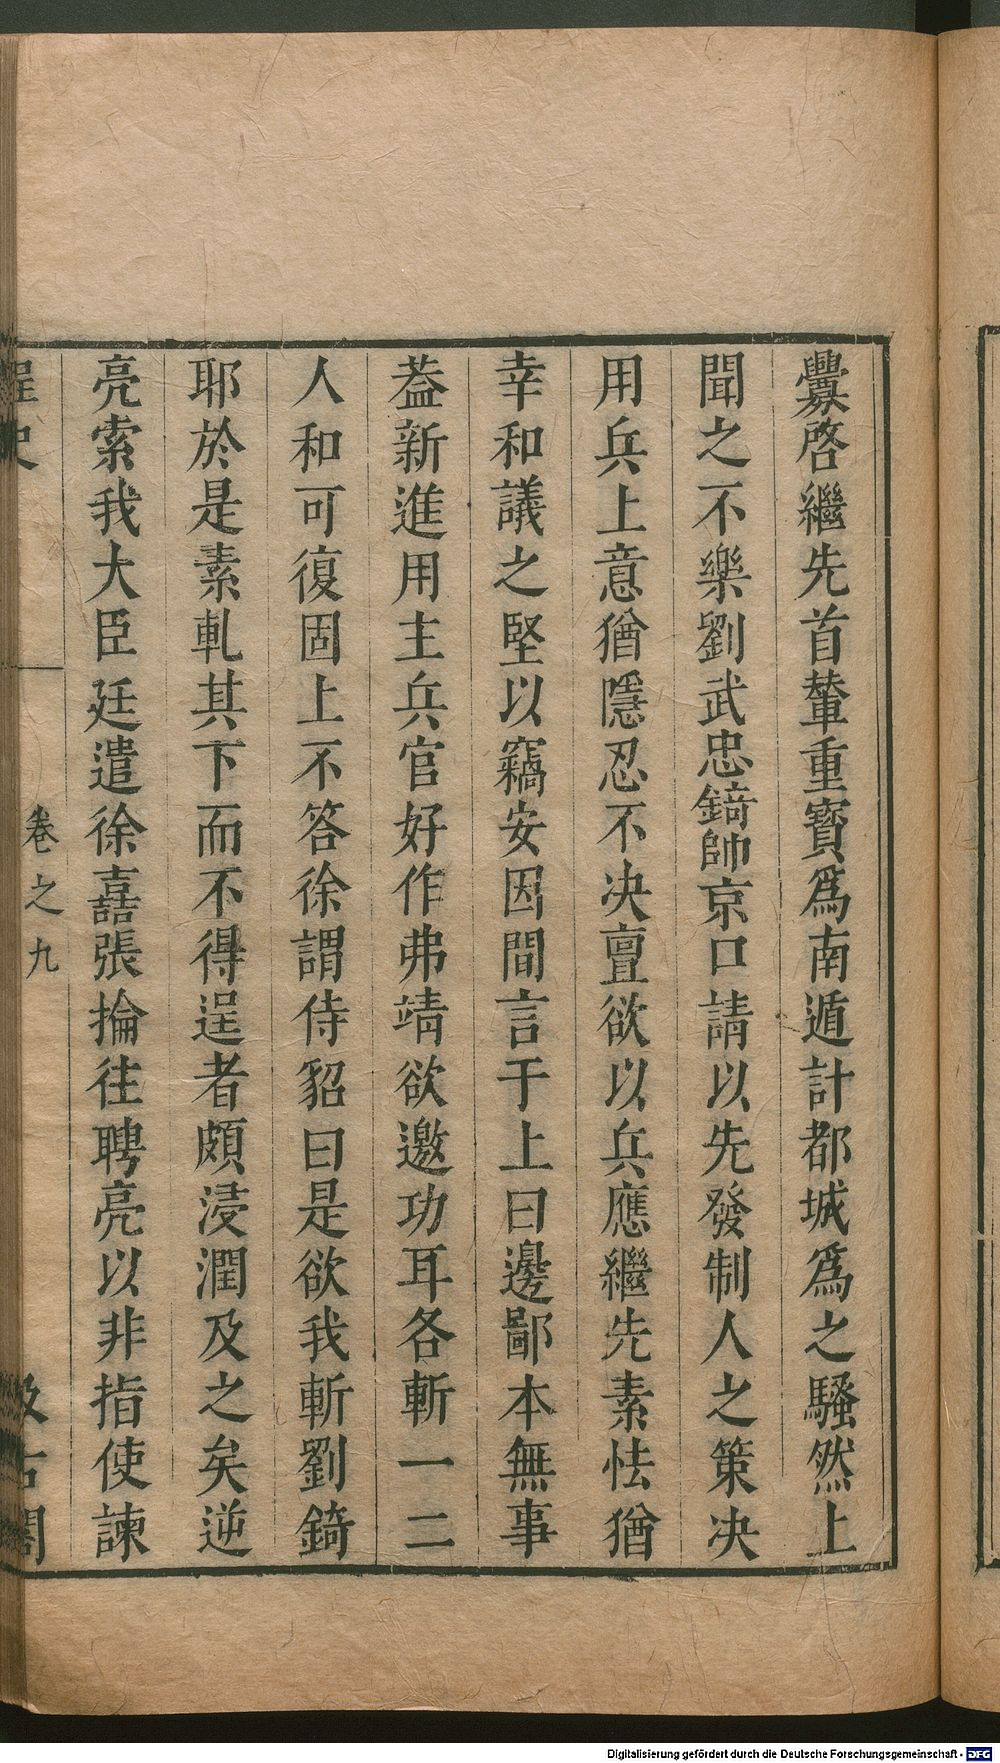 釁啓繼先首輦重寳爲南遁計都城爲之騷然上
聞之不樂劉武忠錡帥京口請以先發制人之策决
用兵上意猶隱忍不决亶欲以兵應繼先素怯猶
幸和議之堅以竊安因間言于上曰邊鄙本無事
葢新進用主兵官好作弗靖欲邀功耳各斬一二
人和可復固上不答徐謂侍貂曰是欲我斬劉錡
耶於是素軋其下而不得逞者頗浸潤及之矣逆
亮索我大臣廷遣徐嚞張掄往聘亮以非指使諫
桯史 卷之九 汲古閣
Digitalisierung gefördert durch die Deutsche Forschungsgemeinschaft - DFG